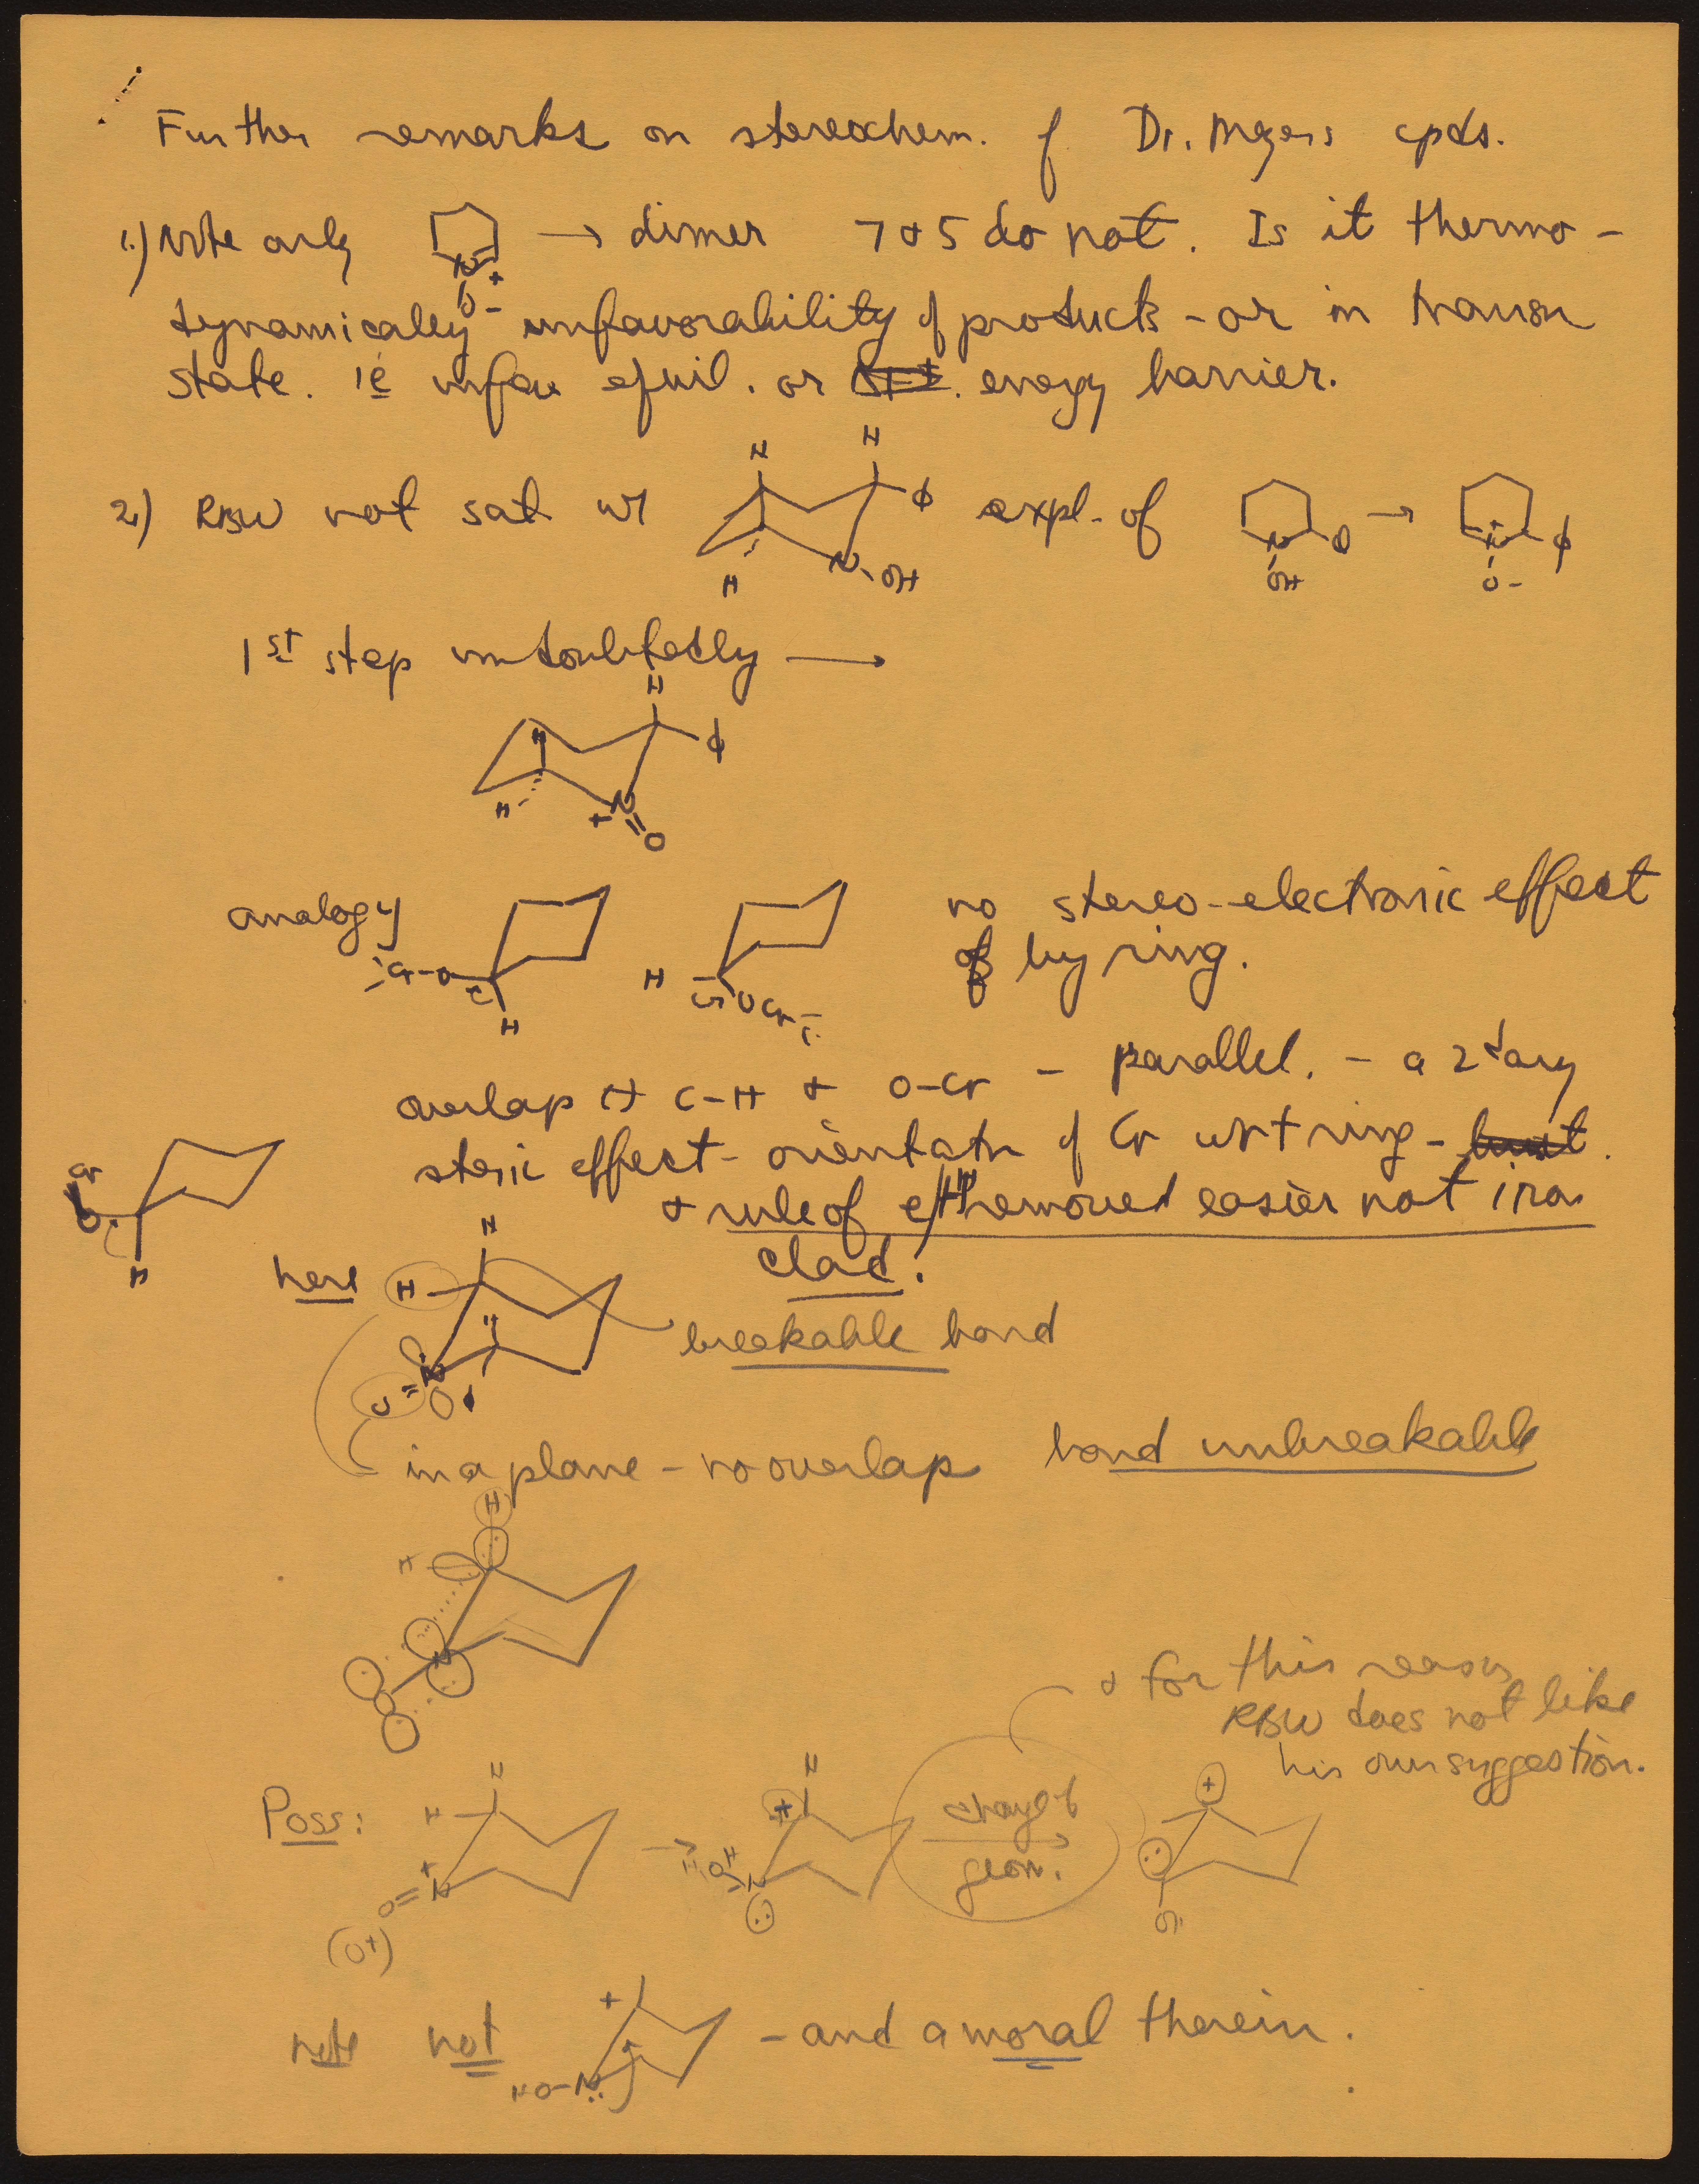 Further remarks on stereochem. of Dr. Meyers cpds.
1.) Note only N + O - → dimer 7 & 5 do not. Is it thermo-
dynamically unfavorability of products - or in transn
state. ie unfav equil. or energy barrier.
2) RBW not sat w/ H H H N-OH ϕ expl. of N OH ϕ → N + O - ϕ
1st step undoubtedly →
H H H ϕ + N = O
analogy Cr-O C H H C OCr no stereo-electronic effect
of by ring.
overlap C-H & O-Cr - parallel. - a 2dary
steric effect - orientatn of Cr wrt ring - but
& rule of e/H removed easier not iron
clad.
Cr O H
here H H H N O breakable bond
in a plane - no overlap bond unbreakable
H H N
& for this reason
RBW does not like
his own suggestion.
Poss: H H + N O= (O+) → H + OH N : change of geom. → + : O
note not + HO-N: - and a moral therein.